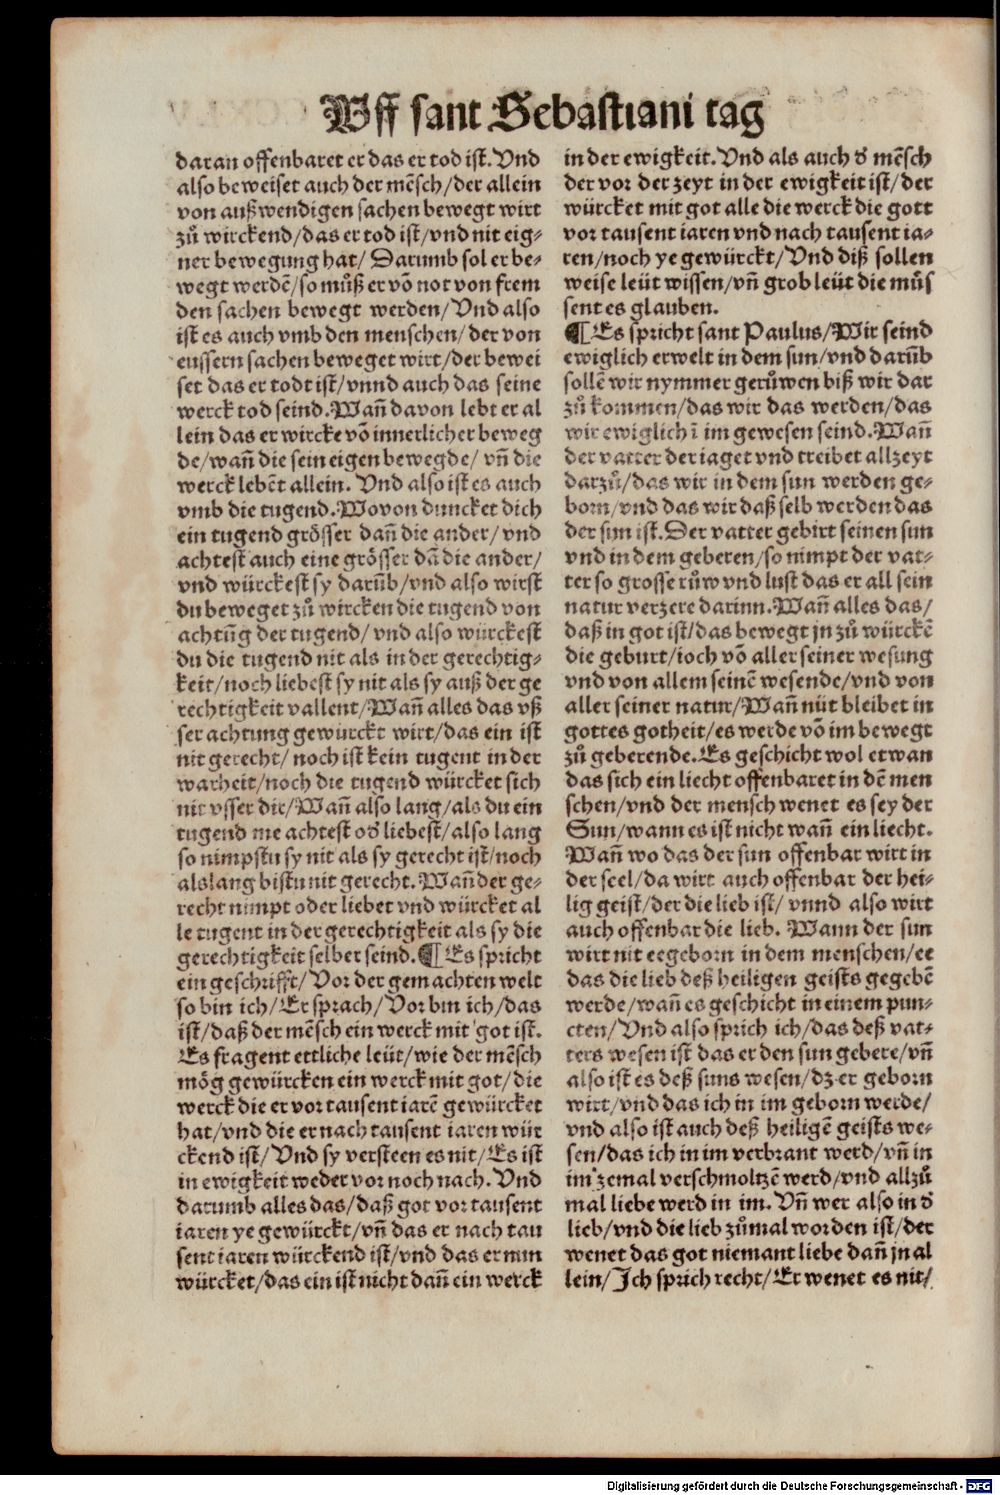 Uff sant Sebastiani tag
daran offenbaret er das er tod ist. Vnd
also beweiset auch der mēsch/der allein
von außwendigen sachen bewegt wirt
zů wirckend/das er tod ist/vnd nit eig⸗
ner bewegung hat/ Darumb sol er be⸗
wegt werdē/so můß er vō not von frem
den sachen bewegt werden/Vnd also
ist es auch vmb den menschen/der von
eussern sachen beweget wirt/der bewei
set das er todt ist/vnnd auch das seine
werck tod seind. Wañ davon lebt er al
lein das er wircke vō innerlicher beweg
de/wañ die sein eigen bewegde/ vñ die
werck lebēt allein. Vnd also ist es auch
vmb die tugend. Wovon duncket dich
ein tugend grösser dañ die ander/vnd
achtest auch eine grösser dā die ander/
vnd würckest sy darūb/vnd also wirst
du beweget zů wircken die tugend von
achtūg der tugend/vnd also würckest
du die tugend nit als in der gerechtig⸗
keit/noch liebest sy nit als sy auß der ge
rechtigkeit vallent/Wañ alles das vß
ser achtung gewürckt wirt/das ein ist
nit gerecht/ noch ist kein tugent in der
warheit/noch die tugend würcket sich
nit vsser dir/Wañ also lang/als du ein
tugend me achtest oď liebest/also lang
so nimpstu sy nit als sy gerecht ist/noch
alslang bistu nit gerecht. Wañ der ge⸗
recht nimpt oder liebet vnd würcket al
le tugent in der gerechtigkeit als sy die
gerechtigkeit selber seind. ¶ Es spricht
ein geschrifft/Vor der gemachten welt
so bin ich/Er sprach/Vor bin ich/das
ist/daß der mēsch ein werck mit got ist.
Es fragent ettliche leüt/wie der mēsch
mög gewürcken ein werck mit got/die
werck die er vor tausent iarē gewürcket
hat/vnd die er nach tausent iaren wür
ckend ist/Vnd sy versteen es nit/Es ist
in ewigkeit weder vor noch nach. Vnd
darumb alles das/daß got vor tausent
iaren ye gewürckt/vñ das er nach tau
sent iaren würckend ist/vnd das er nun
würcket/das ein ist nicht dañ ein werck
in der ewigkeit. Vnd als auch ď mēsch
der vor der zeyt in der ewigkeit ist/der
würcket mit got alle die werck die gott
vor tausent iaren vnd nach tausent ia⸗
ren/noch ye gewürckt/Vnd diß sollen
weise leüt wissen/vñ grob leüt die můs
sent es glauben.
¶ Es spricht sant Paulus/Wir seind
ewiglich erwelt in dem sun/vnd darūb
sollē wir nymmer gerůwen biß wir dar
zů kommen/das wir das werden/das
wir ewiglich ī im gewesen seind. Wañ
der vatter der iaget vnd treibet allzeyt
darzů/das wir in dem sun werden ge⸗
born/vnd das wir daß selb werden das
der sun ist. Der vatter gebirt seinen sun
vnd in dem geberen/so nimpt der vat⸗
ter so grosse růw vnd lust das er all sein
natur verzere darinn. Wañ alles das/
daß in got ist/das bewegt jn zů würckē
die geburt/ioch vō aller seiner wesung
vnd von allem seinē wesende/vnd von
aller seiner natur/Wañ nüt bleibet in
gottes gotheit/es werde vō im bewegt
zů geberende. Es geschicht wol etwan
das sich ein liecht offenbaret in dē men
schen/vnd der mensch wenet es sey der
Sun/wann es ist nicht wañ ein liecht.
Wañ wo das der sun offenbar wirt in
der seel/da wirt auch offenbar der hei⸗
lig geist/der die lieb ist/ vnnd also wirt
auch offenbar die lieb. Wann der sun
wirt nit ee geborn in dem menschen/ee
das die lieb deß heiligen geists gegebē
werde/wañ es geschicht in einem pun⸗
cten/Vnd also sprich ich/das deß vat⸗
ters wesen ist das er den sun gebere/vñ
also ist es deß suns wesen/dz er geborn
wirt/vnd das ich in im geborn werde/
vnd also ist auch deß heiligē geists we⸗
sen/das ich in im verbrant werd/vñ in
im zemal verschmoltzē werd/vnd allzů
mal liebe werd in im. Vñ wer also in ď
lieb/vnd die lieb zůmal worden ist/der
wenet das got niemant liebe dañ jn al
lein/Ich sprich recht/Er wenet es nit/
Digitalisierung gefördert durch die Deutsche Forschungsgemeinschaft - DFG